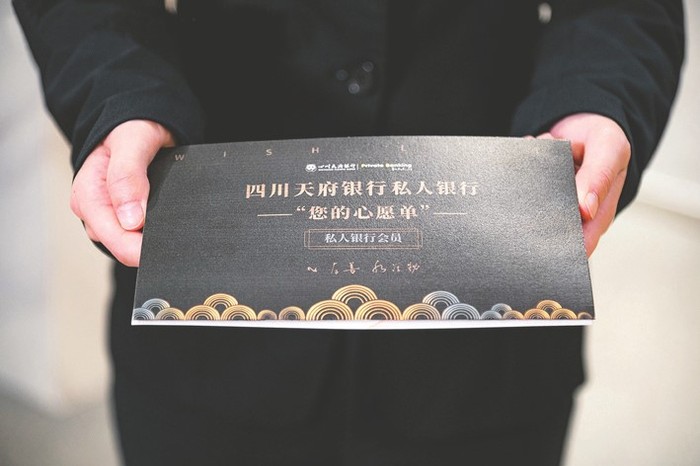 WISH L
四川天府银行 | Private Banking
四川天府银行私人银行
——“您的心愿单”——
私人银行会员